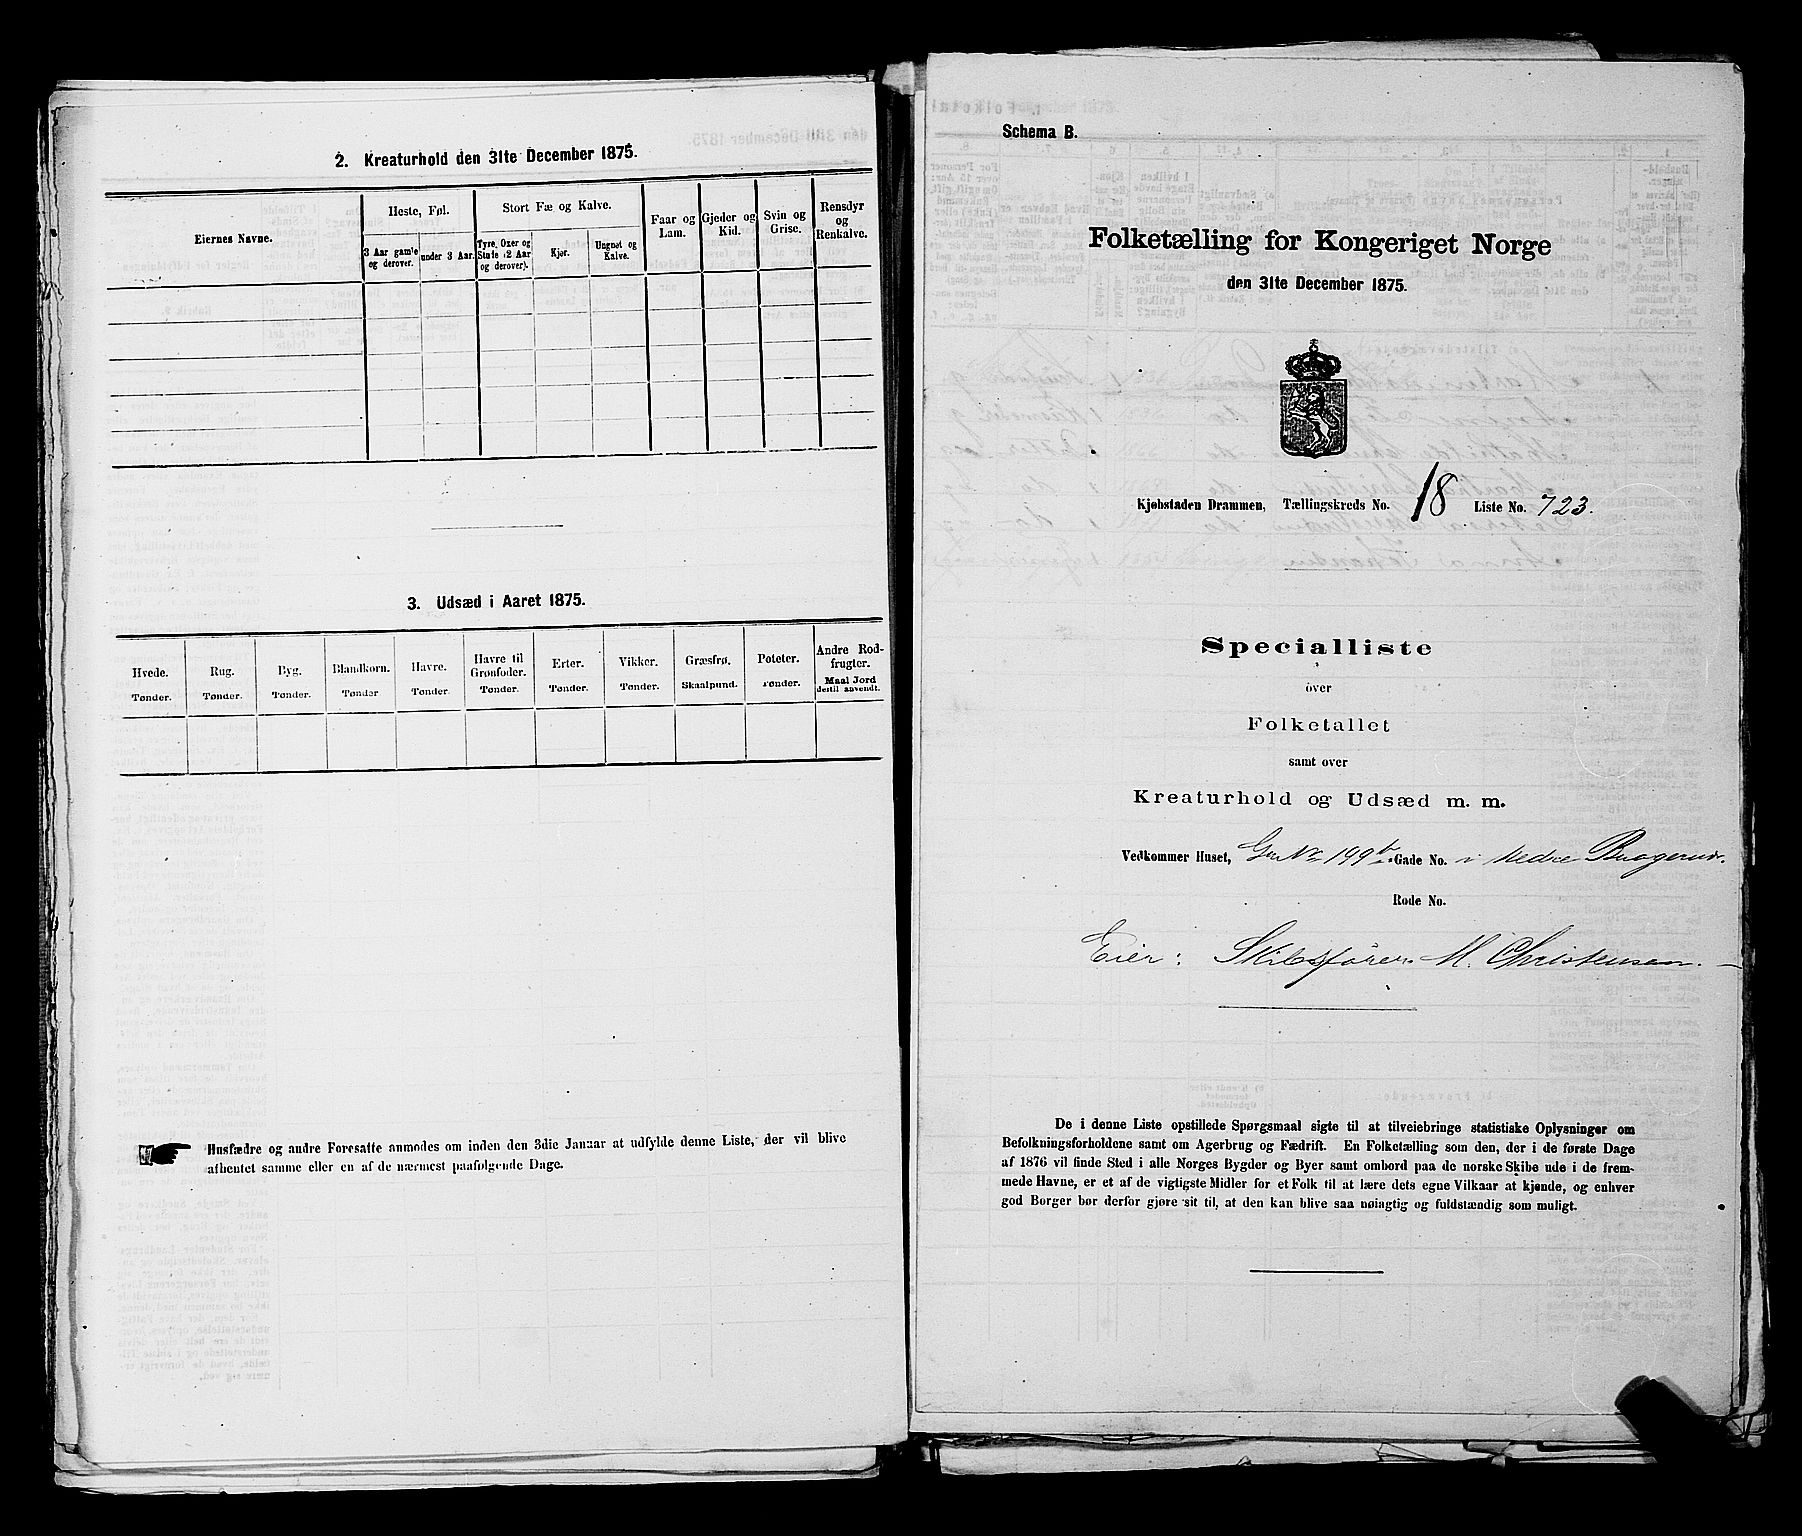 2. Kreaturhold den 31te December 1875.
Eiernes Navne.
Heste, Føl.
3 Aar gamle og derover.
under 3 Aar.
Stort Fæ og Kalve.
Tyre, Oxer og Stude (2 Aar og derover).
Kjør.
Ungnøt og Kalve.
Faar og Lam.
Gjeder og Kid.
Svin og Grise.
Rensdyr og Renkalve.
3. Udsæd i Aaret 1875.
Hvede. Tønder.
Rug. Tønder.
Byg. Tønder.
Blandkorn. Tønder
Havre. Tønder.
Havre til Grønfoder. Tønder.
Erter. Tønder.
Vikker. Tønder.
Græsfrø. Skaalpund.
Poteter. Tønder.
Andre Rodfrugter. Maal Jord dertil anvendt.
Husfædre og andre Foresatte anmodes om inden den 3die Januar at udfylde denne Liste, der vil blive
afhentet samme eller en af de nærmest paafølgende Dage.
Schema B.
Folketælling for Kongeriget Norge
den 31te December 1875.
Kjøbstaden Drammen, Tællingskreds No. 18 Liste No. 723.
Specialliste
over
Folketallet
samt over
Kreaturhold og Udsæd m. m.
Vedkommer Huset, G.Nr 199b. Gade No. i Nedre Bragernæs.
Rode No.
Eier: Skibsfører M. Christensen.
De i denne Liste opstillede Spørgsmaal sigte til at tilveiebringe statistiske Oplysninger om
Befolkningsforholdene samt om Agerbrug og Fædrift. En Folketælling som den, der i de første Dage
af 1876 vil finde Sted i alle Norges Bygder og Byer samt ombord paa de norske Skibe ude i de frem-
mede Havne, er et af de vigtigste Midler for et Folk til at lære dets egne Vilkaar at kjende, og enhver
god Borger bør derfor gjøre sit til, at den kan blive saa nøiagtig og fuldstændig som muligt.